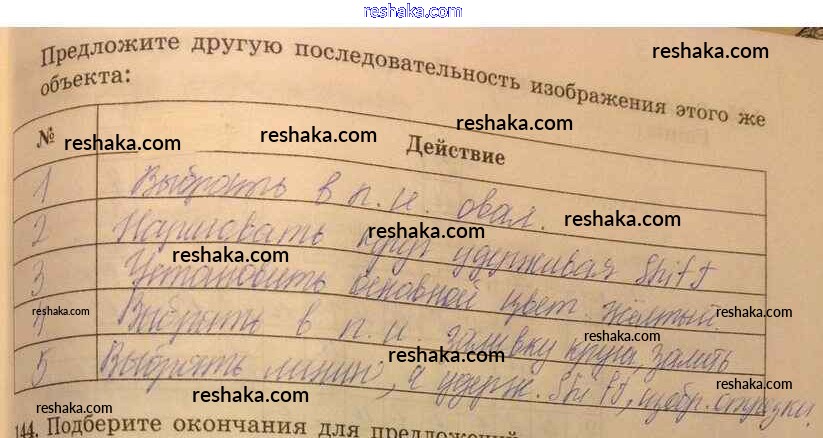 reshaka.com
Предложите другую последовательность изображения этого же
объекта:
reshaka.com
№ Действие
reshaka.com
reshaka.com
reshaka.com
1 Выбрать в п. и. овал.
reshaka.com
reshaka.com
2 Нарисовать круг удерживая Shift
reshaka.com
3 Установить основной цвет жёлтый.
reshaka.com
reshaka.com
4 Выбрать в п. и заливку круга, залить
reshaka.com
reshaka.com
5 Выбрать линии, и удерж. Shift, изобр. отрезки.
reshaka.com
reshaka.com
reshaka.com
144. Подберите окончания для предложений